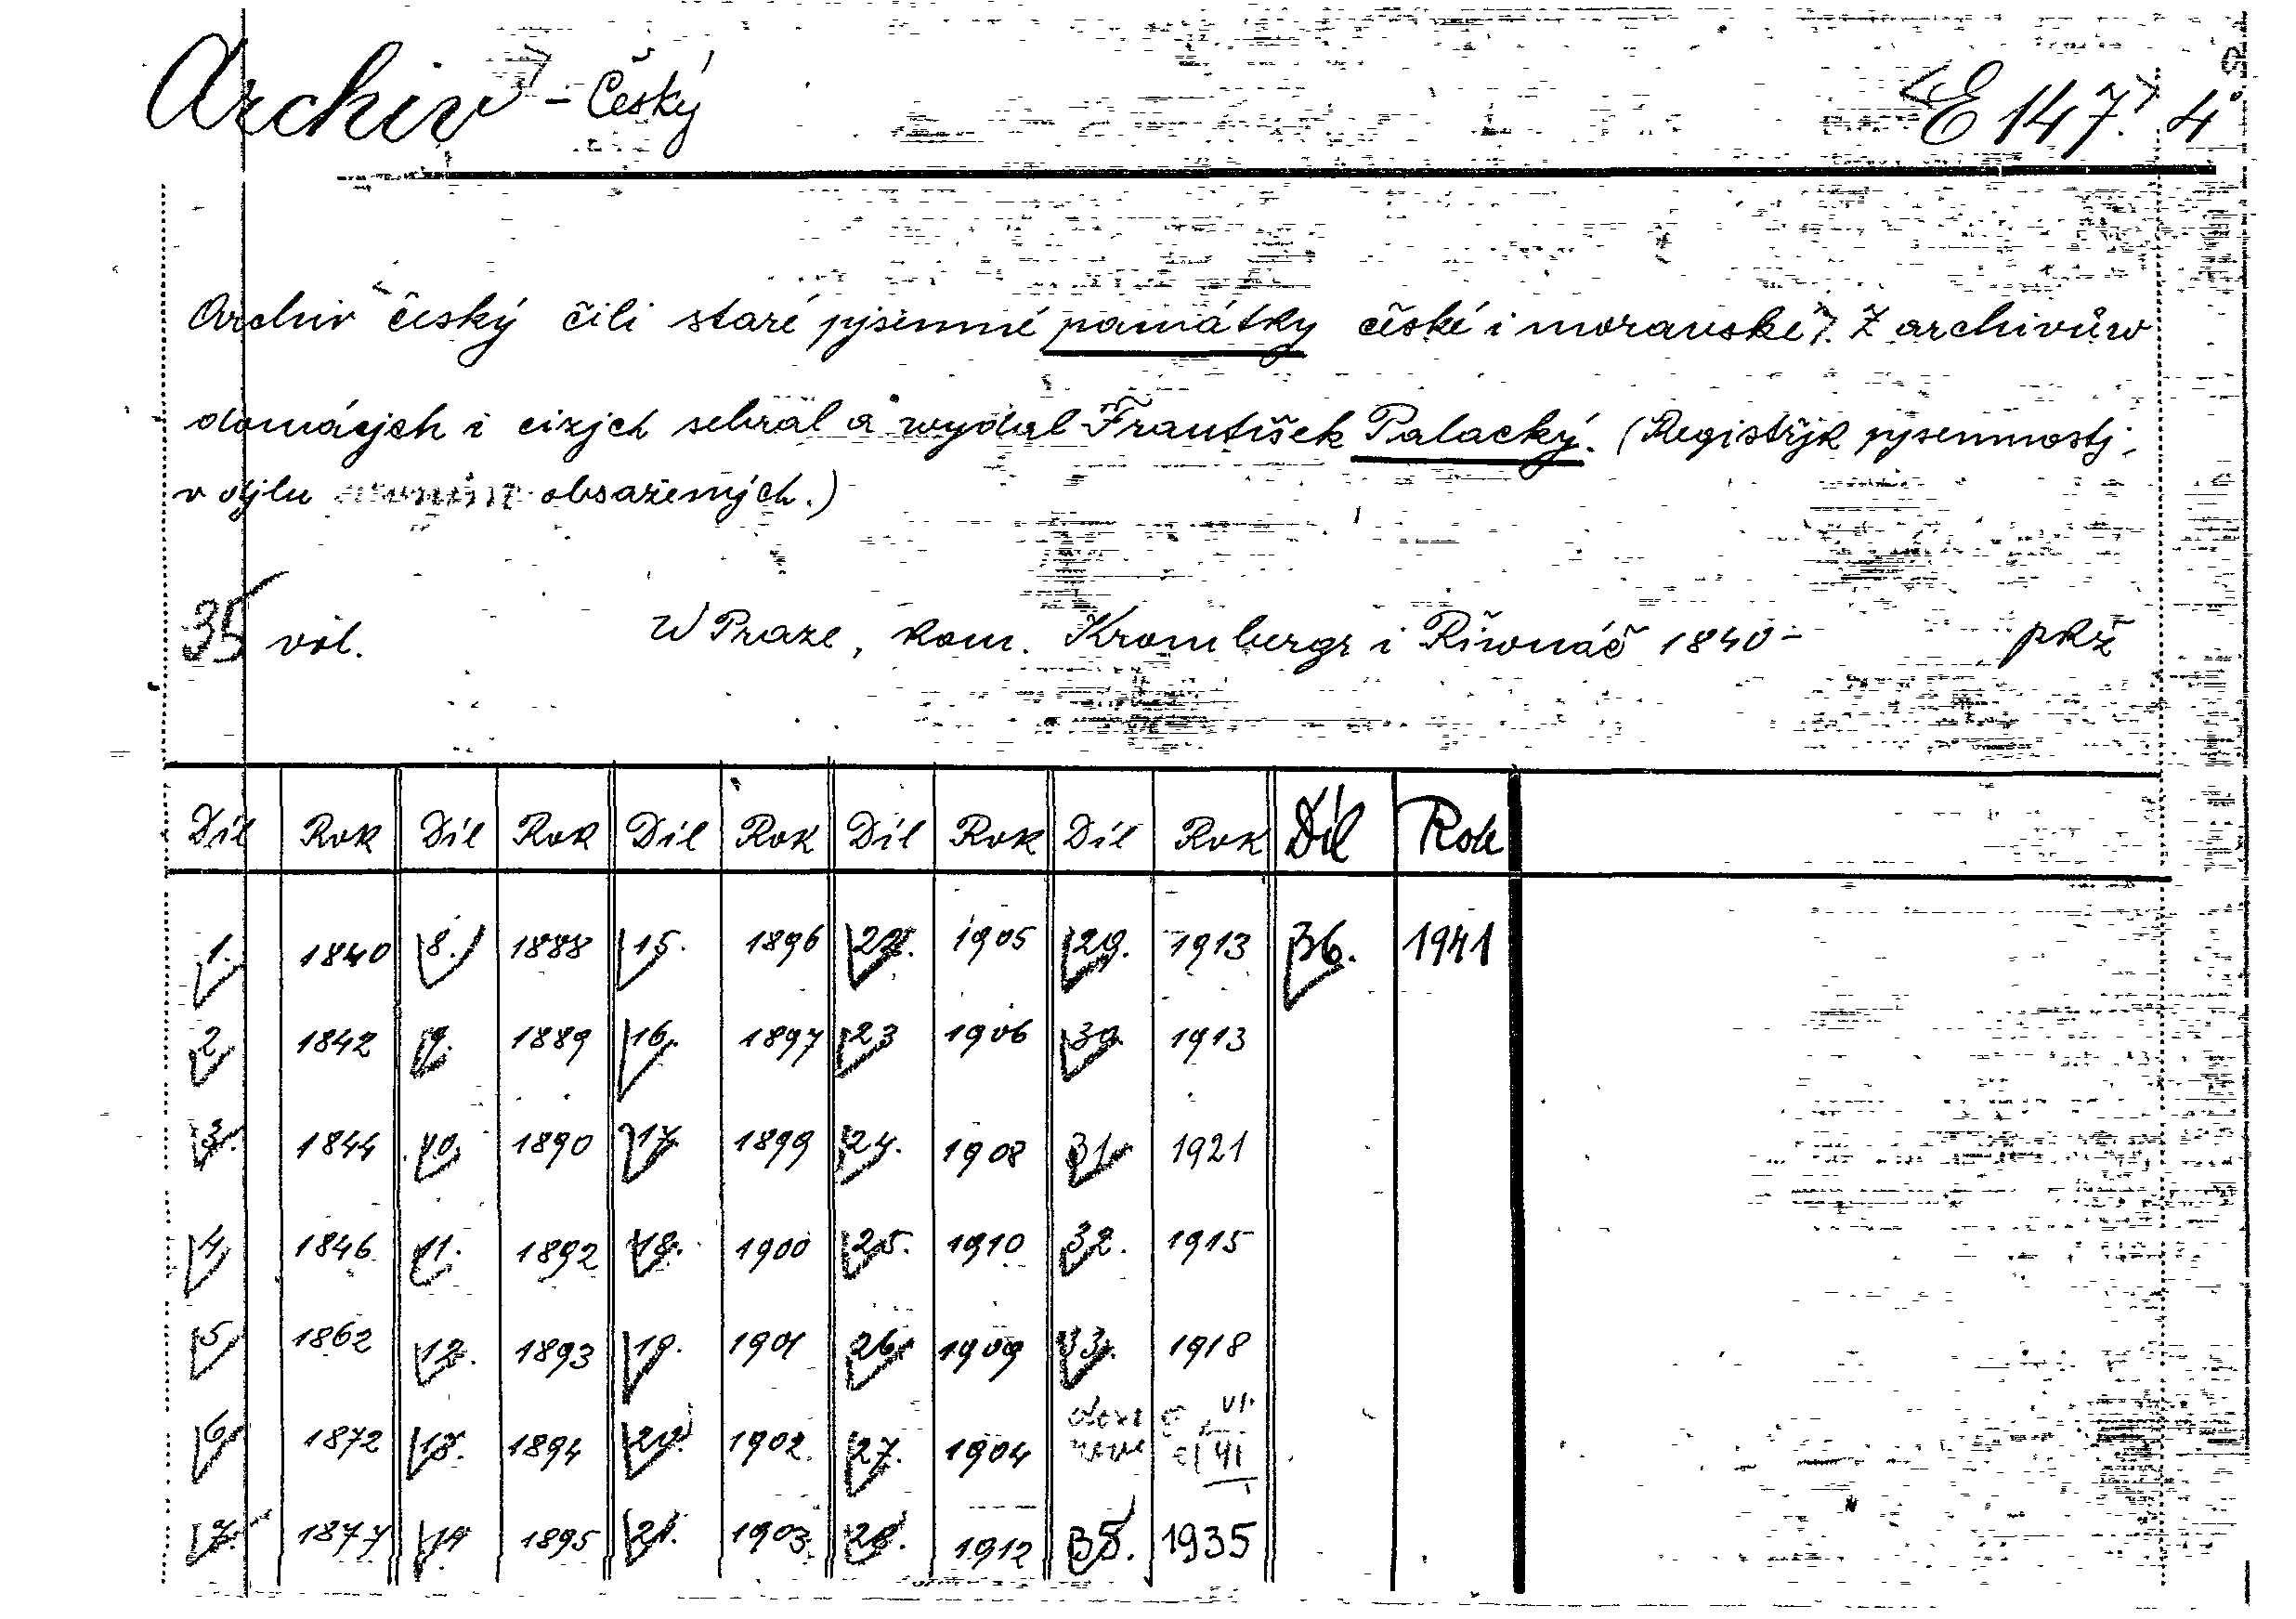 Archiv - Český <E 147.> 4°
Archiv český čili staré pjsemné památky české i morauské>. Z archivůw
domácjch i cizjch sebral a wydal František Palacký. (Registřjk pjsemnostj
v djlu obsažených.)
35 vol. W Praze, kom. Kronbergr i Řiwnáč 1840- pkž
Díl Rok Díl Rok Díl Rok Díl Rok Díl Rok Díl Rok
1. 1840 8. 1888 15. 1896 22. 1905 29. 1913 36. 1941
2 1842 9. 1889 16. 1897 23 1906 30. 1913
3. 1844 10. 1890 17. 1899 24. 1908 31. 1921
4 1846 11. 1892 18. 1900 25. 1910 32. 1915
5 1862 12. 1893 19. 1901 26. 1909 33. 1918
6 1872 13. 1894 20. 1902 27. 1904
7. 1877 14. 1895 21. 1903 28. 1912 35. 1935